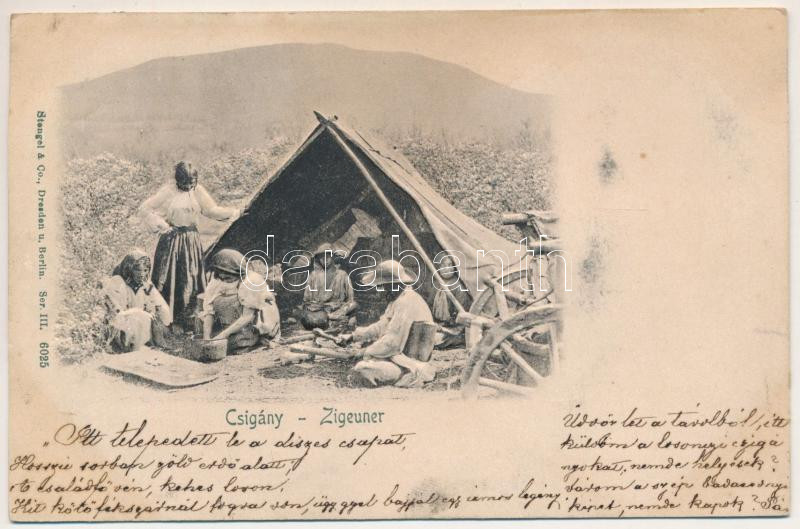 Stengel & Co., Dresden u. Berlin. Ser. III. 6025
darabanth.com
Csigány - Zigeuner
"Itt telepedett le a diszes csapat,
Hosszú sorban zöld erdő alatt,
A családfővén, kehes lovon,
Kit kötőfékszárnál fogva von, üggyel bajjal egy izmos legény
Üdvözlet a távolból, itt
küldöm a losonczi czigá
nyokat, nemde helyesek?
várom a szép Badacsonyi
képet, nemde kapok?